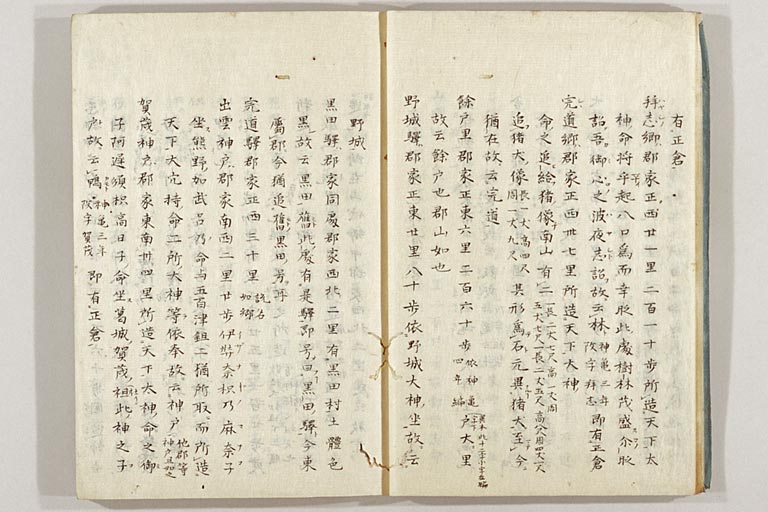 有正倉
拜志郷郡家正西廿一里二百一十步所造天下太
神命將平起八口爲而幸時此處樹林茂盛介時
詔吾御心之波夜志詔故云林神亀三年改字拜志即有正倉
完道郷郡家正西卅七里所造天下大神
命之追給猪像南山有二一長二丈七尺高一丈周五丈七尺一長二丈五尺高八尺周四丈一尺
追猪犬像長一丈高四尺周一丈九尺其形爲石元異猪犬至今
猶在故云完道
餘戸里郡家正東六里二百六十步依神亀四年編戸大里
故云餘戸也郡山如也
野城驛郡家正東廿里八十步依野城大神坐故云
野城
黒田驛郡家同處郡家西北二里有黒田村土體色
黒故云黒田舊此處有是驛即号曰黒田驛今東
屬郡今猶追舊黒田号耳
完道驛郡家正西三十里說名如郷
出雲神戸郡家南西二里廿步伊弉奈枳乃麻奈子
坐熊野加武呂乃命与五百津鉏二猶所取而所造
天下大穴持命二所大神等依奉故云神戸他郡等神戸且如之
賀茂神戸郡家東南卅四里所造天下大神命之御
子阿遅須枳高日子命坐葛城賀茂社此神之子
戸故云鴨神亀三年改字賀茂即有正倉